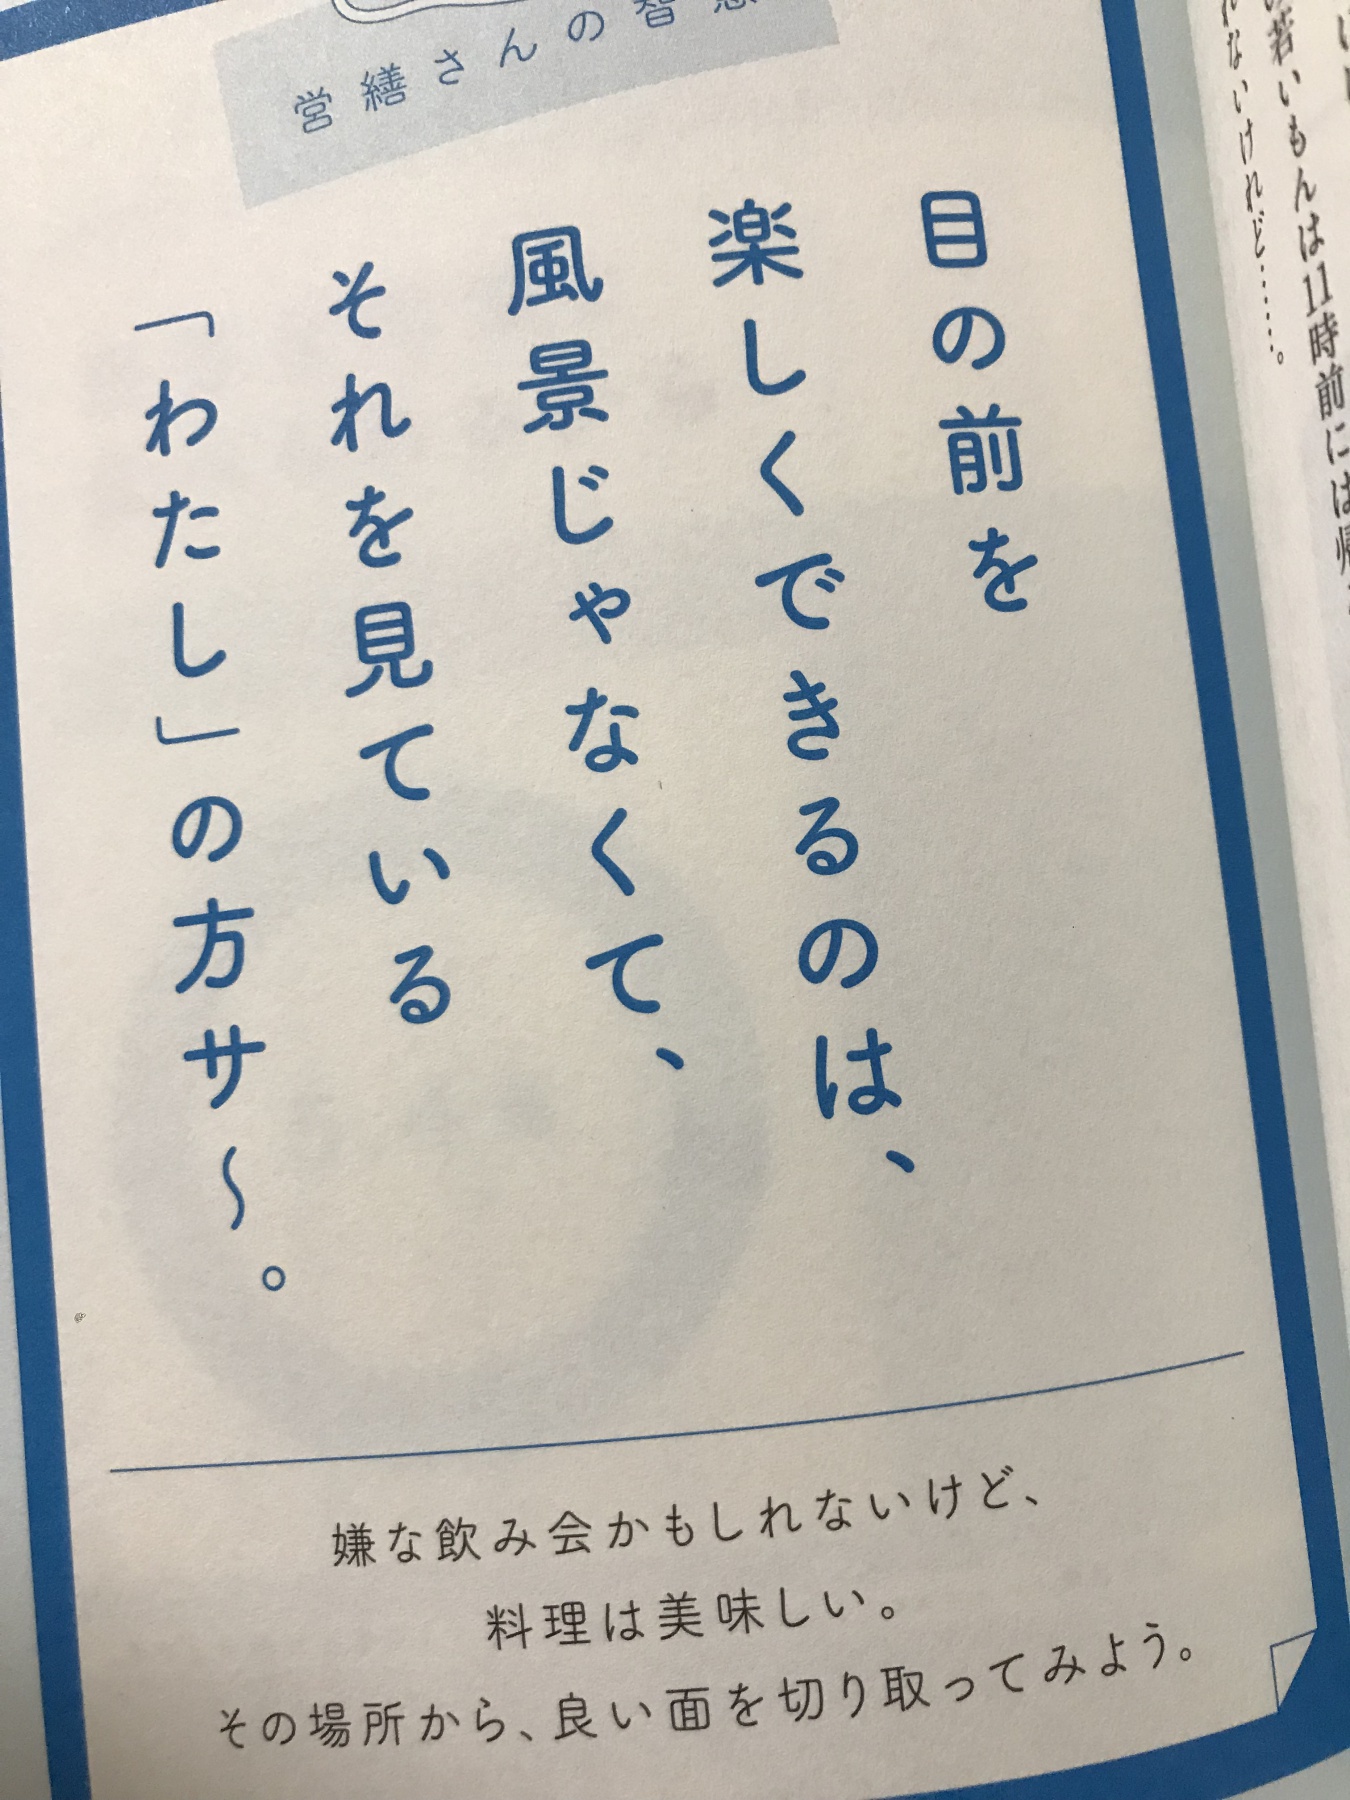 営繕さんの智恵
目の前を
楽しくできるのは、
風景じゃなくて、
それを見ている
「わたし」の方サ〜。
嫌な飲み会かもしれないけど、
料理は美味しい。
その場所から、良い面を切り取ってみよう。
若いもんは11時前には帰
れないけれど……。